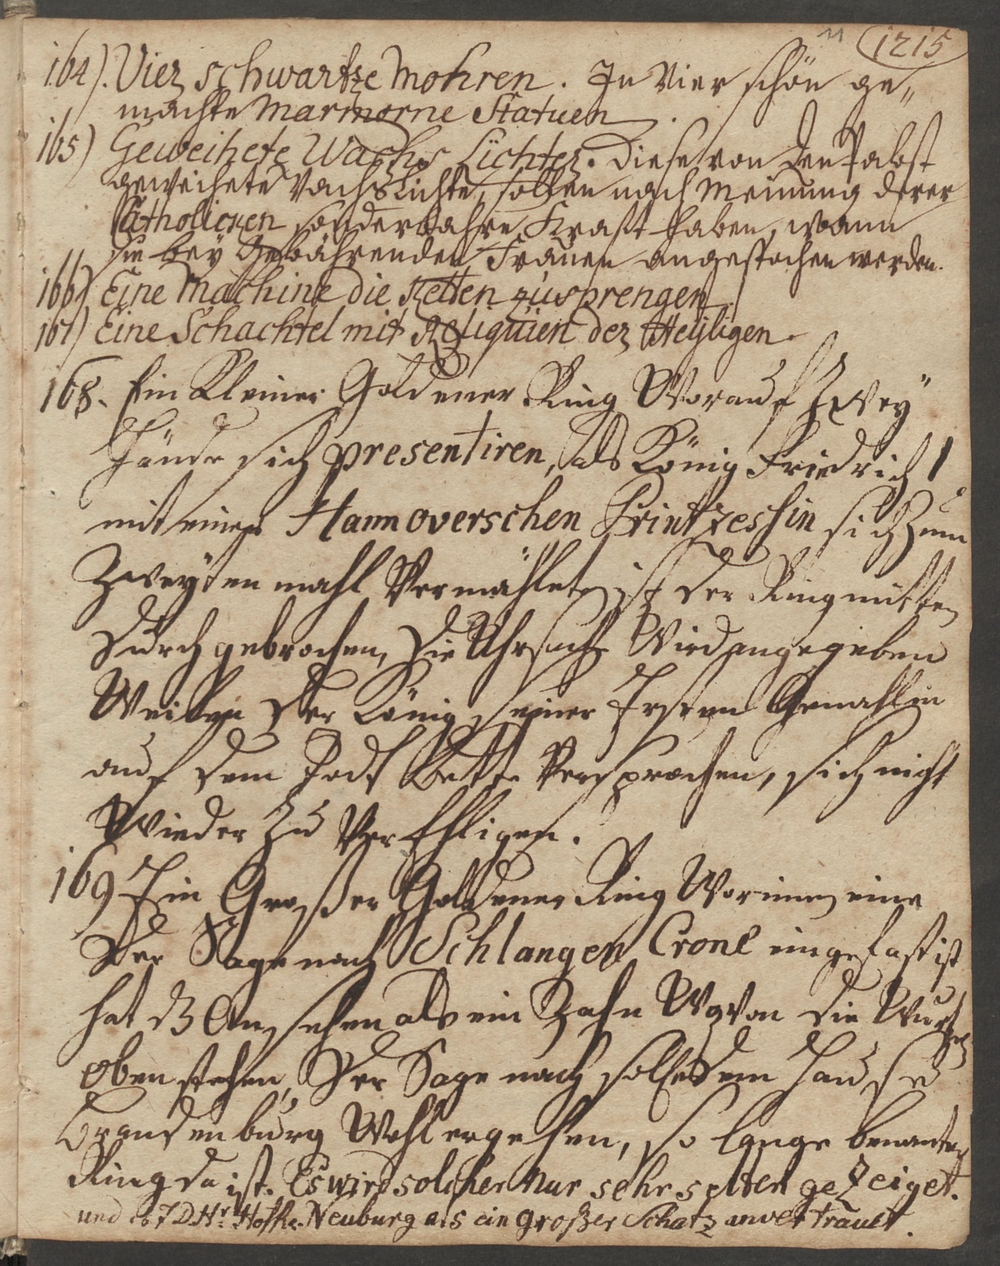 11 1215
164). Vier schwartze Mohren. In Vier schön ge„
machte Marmorne Statuen.
165) Geweihete Wachs Lichter. Diese von den Pabst
geweihete Wachslichte, sollen nach Meinung derer
Catholicken sonderbahre Krafft haben, wann
sie bey Gebährenden Frauen angestochen werden.
166) Eine Machine die Ketten zusprengen.
167) Eine Schachtel mit Reliquien der Heyligen.
168. Ein Kleiner Goldener Ring Worauf Zwey
Hände sich presentiren, als König Friedrich 1
mit einer Hannoverschen Printzessin sich zum
Zweyten mahl Vermählet, ist der Ring mitten
durch gebrochen, die Uhrsach Wird angegeben
Weilen der König seiner Ersten Gemahlin
auf dem Todt Bette Versprochen, sich nicht
Wieder zu VerEhligen.
169 Ein Großer Goldener Ring Worinnen eine
Der Sage nach Schlangen Crone eingefast ist
hat das Ansehen als ein Zahn Wovon die Wurtzel
oben stehen, Der Sage nach soll es dem Hause
Brandenburg Wohl ergehen, so lange benanter
Ring da ist. Es wird solcher nur sehr selten gezeiget.
und ist D. Hr. Hofr. Neuburg als ein großer Schatz anvertrauet.